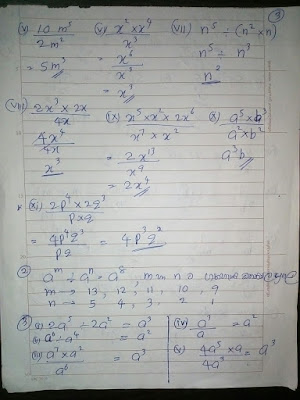 ③
(v) 10 m⁵ / 2m² (vi) x² × x⁴ / x³ (vii) n⁵ ÷ (n² × n)
= 5m³ = x⁶ / x³ n⁵ ÷ n³
= x³ n²
(viii) 2x³ × 2x / 4x (ix) x⁵ × x² × 2x⁶ / x⁷ × x² (x) a⁵ × b³ / a² × b²
4x⁴ / 4x = 2x¹³ / x⁹ a³b
x³ = 2x⁴
(xi) 2p⁴ × 2q³ / p × q
= 4p⁴q³ / pq = 4p³q²
② aᵐ ÷ aⁿ = a⁸, m n
m → 13, 12, 11, 10, 9
n → 5 4, 3, 2 1
③ (i) 2a⁵ ÷ 2a² = a³ (iv) a³ / a = a²
(ii) a⁶ ÷ a⁴ = a² (v) 4a⁵ × a / 4a³ = a³
(iii) a⁷ × a² / a⁶ = a³